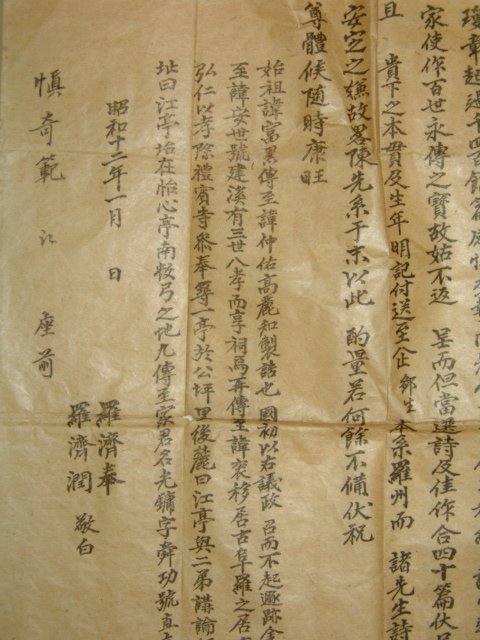 瓊章起過千四百餘篇
家使作百世永傳之寶故姑不返 呈而但當選詩及佳作合四十篇伏呈
且 貴下之本貫及生年明記付送至企 鄙生本系羅州而 諸先生詩
安定之嫌故畧陳先系于末以此 酌量若何餘不備伏祝
尊體候隨時康旺
始祖諱富累傳至諱仲佑高麗知製誥也 國初以右議政 召而不起遯跡
至諱安世號建溪有三世八孝而享祠焉再傳至諱袞移居古阜羅之居
弘仁以孝除禮賓寺叅奉築一亭於公坪里後麓曰江亭與二弟講論
址曰江亭坮在怡心亭南數弓之地九傳至家君名光鏞字舜功號直
昭和十二年一月 日
羅濟奉
羅濟潤 敬白
愼奇範 座前